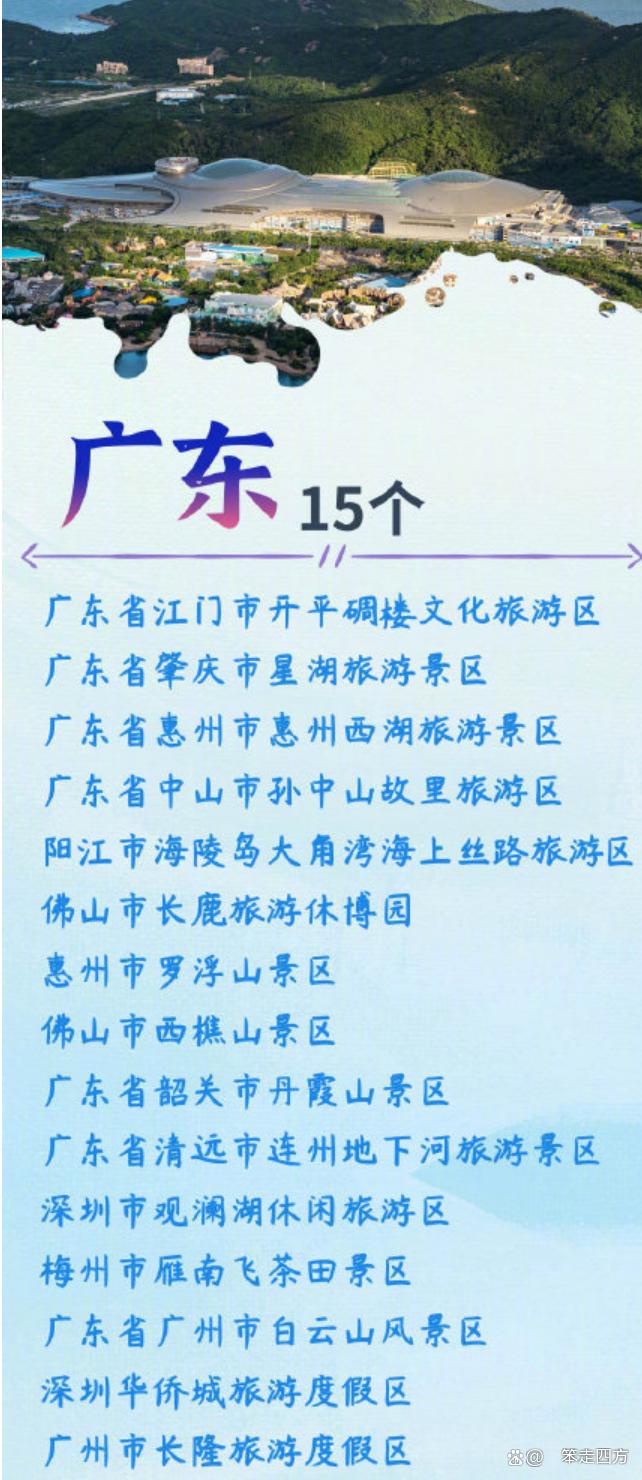 广东 15个
广东省江门市开平碉楼文化旅游区
广东省肇庆市星湖旅游景区
广东省惠州市惠州西湖旅游景区
广东省中山市孙中山故里旅游区
阳江市海陵岛大角湾海上丝路旅游区
佛山市长鹿旅游休博园
惠州市罗浮山景区
佛山市西樵山景区
广东省韶关市丹霞山景区
广东省清远市连州地下河旅游景区
深圳市观澜湖休闲旅游区
梅州市雁南飞茶田景区
广东省广州市白云山风景区
深圳华侨城旅游度假区
广州市长隆旅游度假区
@ 笨走四方